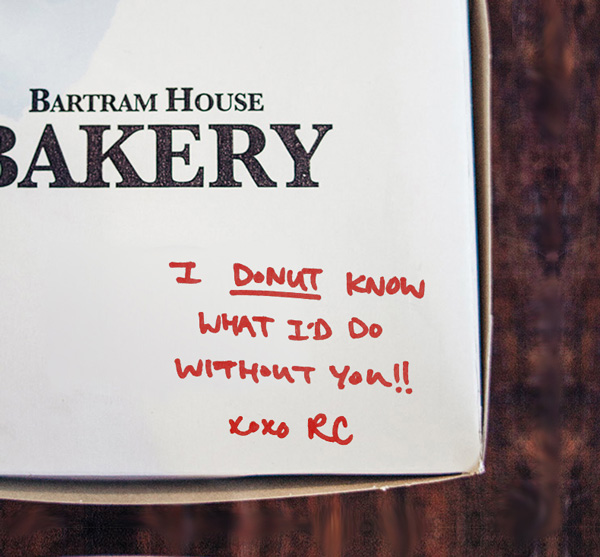 BARTRAM HOUSE
BAKERY
I DONUT KNOW
WHAT I'D DO
WITHOUT YOU!!
xoxo RC